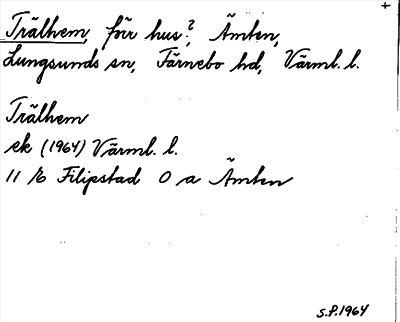 +
Trälhem, förr hus?, Ämten,
Lungsunds sn, Färnebo hd, Värml. l.
Trälhem
ek (1964) Värml. l.
11 /6 Filipstad O a Ämten
S.P. 1964